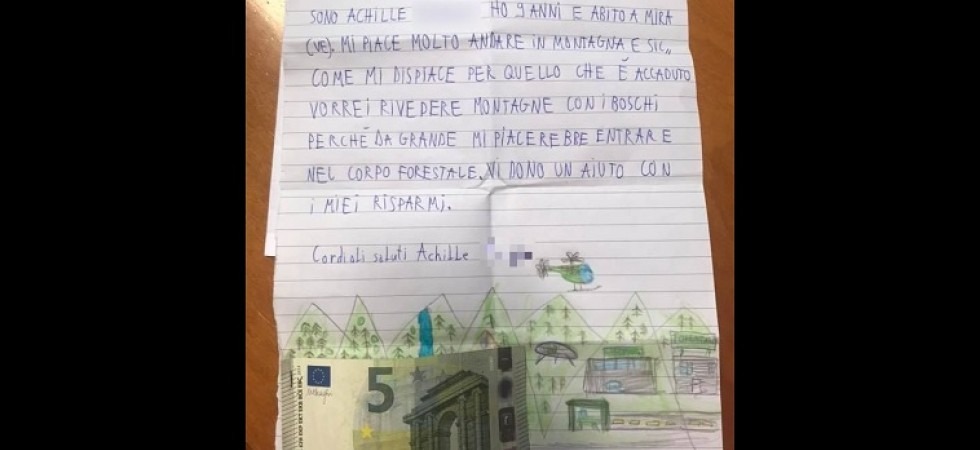 SONO ACHILLE HO 9 ANNI E ABITO A MIRA
(VE). MI PIACE MOLTO ANDARE IN MONTAGNA E SIC„
COME MI DISPIACE PER QUELLO CHE È ACCADUTO
VORREI RIVEDERE MONTAGNE CON I BOSCHI
PERCHÉ DA GRANDE MI PIACEREBBE ENTRARE
NEL CORPO FORESTALE. VI DONO UN AIUTO CON
I MIEI RISPARMI.
Cordiali saluti Achille
5